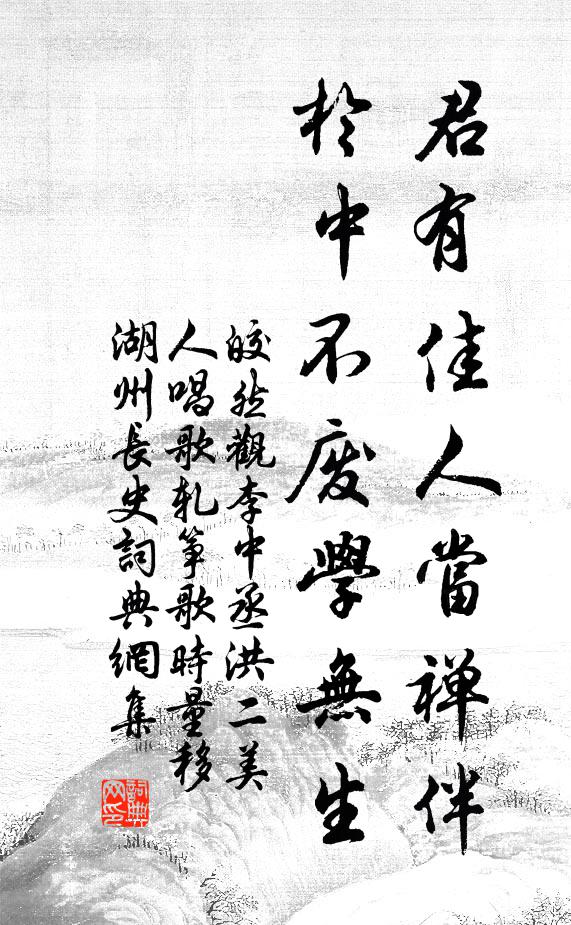 君有佳人當禅伴
於中不废學無生
皎然觀李中丞洪二美
人唱歌軋筝歌時量移
湖州長史詞典網集
詞典
网印